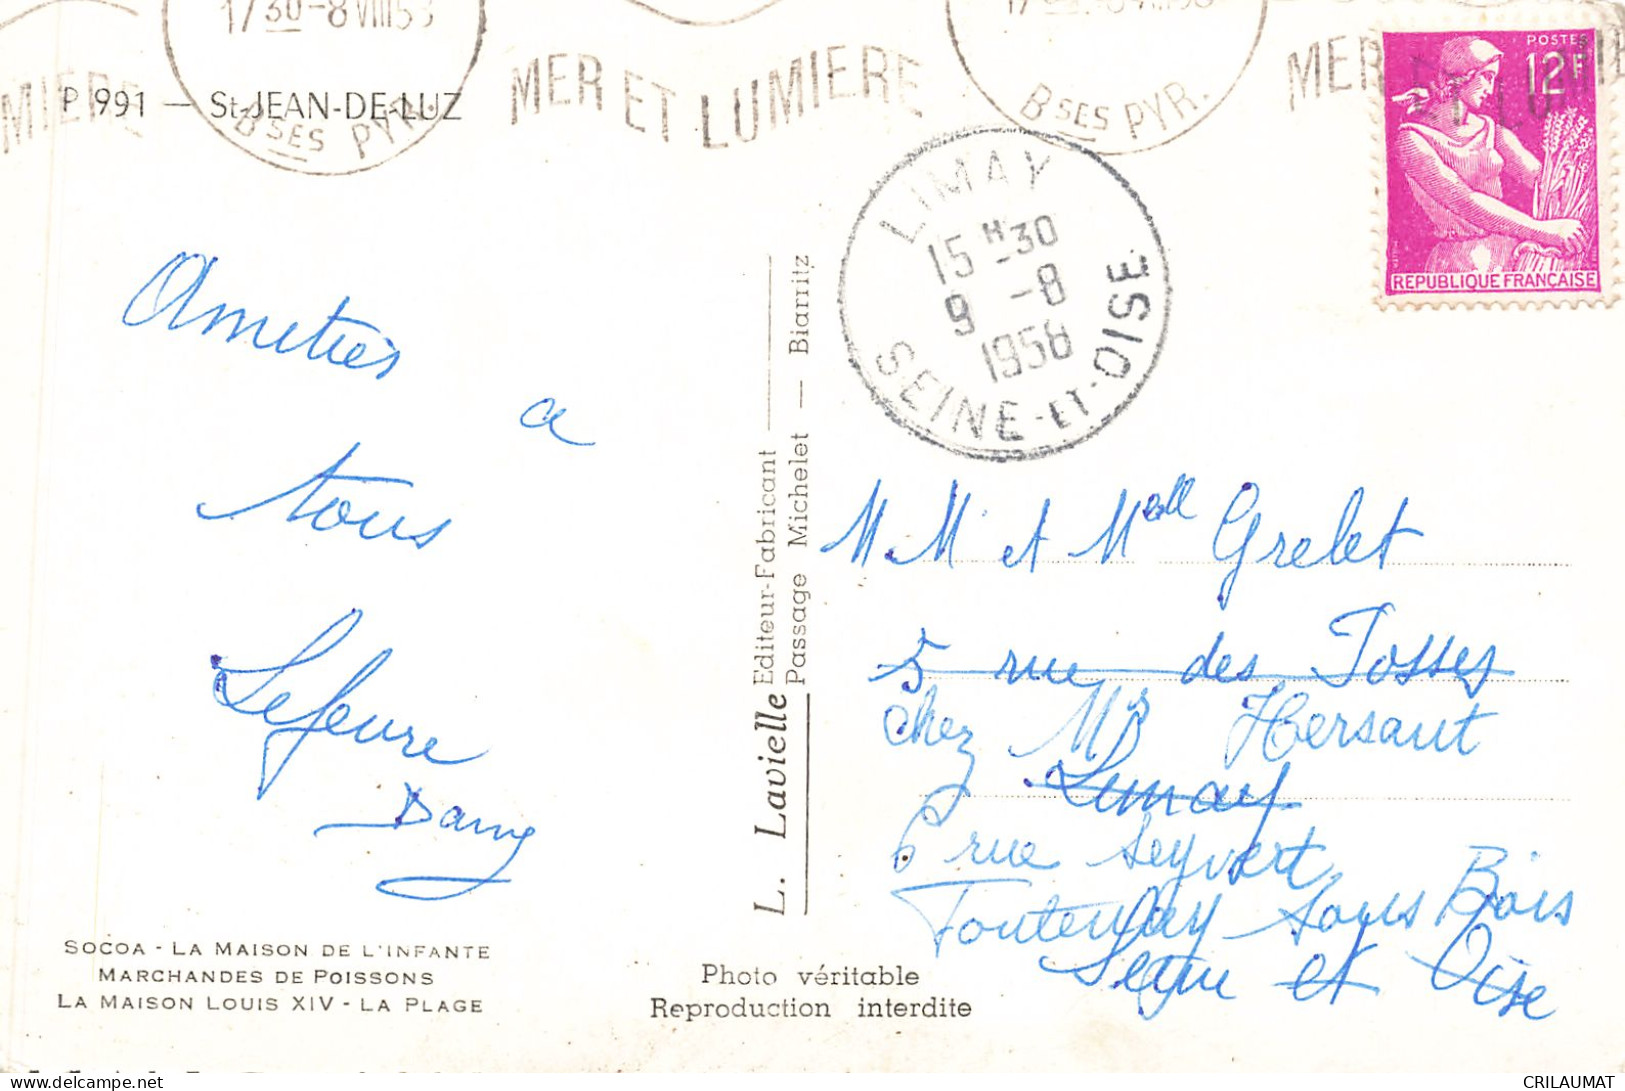 17 30 - 8 VIII 58
MER ET LUMIERE
P 991 — St-JEAN-DE-LUZ
Bses PYR.
Bses PYR.
POSTES
12F
REPUBLIQUE FRANÇAISE
LIMAY
15 H 30
9 -8
1958
SEINE-ET-OISE
Amitiés
a
tous
Lefeuvre
L. Lavielle
Editeur-Fabricant
Passage Michelet — Biarritz
M. M et Mell Grelet
5 rue des Fosses
chez Mrs Hersant
Limay
6 rue Seyvert
Fontenay sous Bois
Seine et Oise
SOCOA - LA MAISON DE L'INFANTE
MARCHANDES DE POISSONS
LA MAISON LOUIS XIV - LA PLAGE
Photo véritable
Reproduction interdite
CRILAUMAT